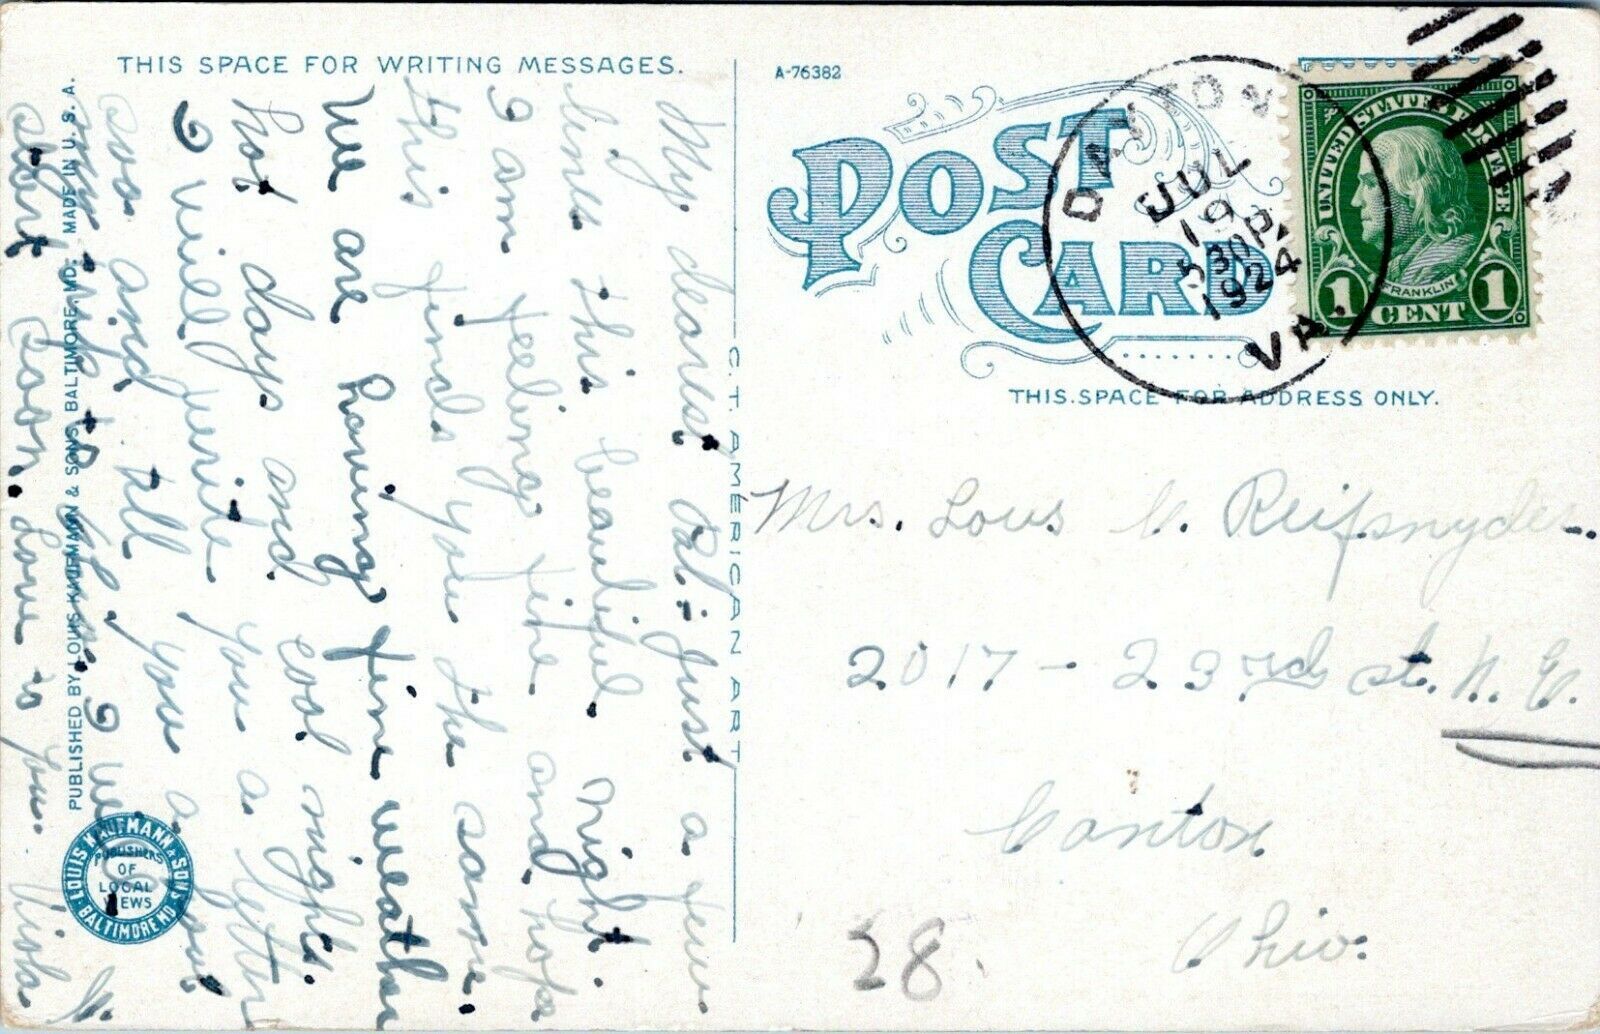 THIS SPACE FOR WRITING MESSAGES.
My dearest Pal:- Just a few
lines this beautiful night.
I am feeling fine and hope
this finds you the same.
We are having fine weather
hot days and cool nights.
I will write you a letter
soon and tell you about
my trip
start soon. Love to you. Viola
PUBLISHED BY LOUIS KAUFMANN & SONS, BALTIMORE, MD. MADE IN U.S.A.
LOUIS KAUFMANN & SONS
BALTIMORE MD
PUBLISHERS
OF
LOCAL
VIEWS
C.T. AMERICAN ART
A-76382
POST
CARD
THIS SPACE FOR ADDRESS ONLY.
DAYTON
JUL
19
530P
1924
VA.
UNITED STATES POSTAGE
FRANKLIN
1 CENT 1
Mrs. Lous C. Reifsnyder.
2017 - 23rd St. N.E.
Canton
Ohio.
28.